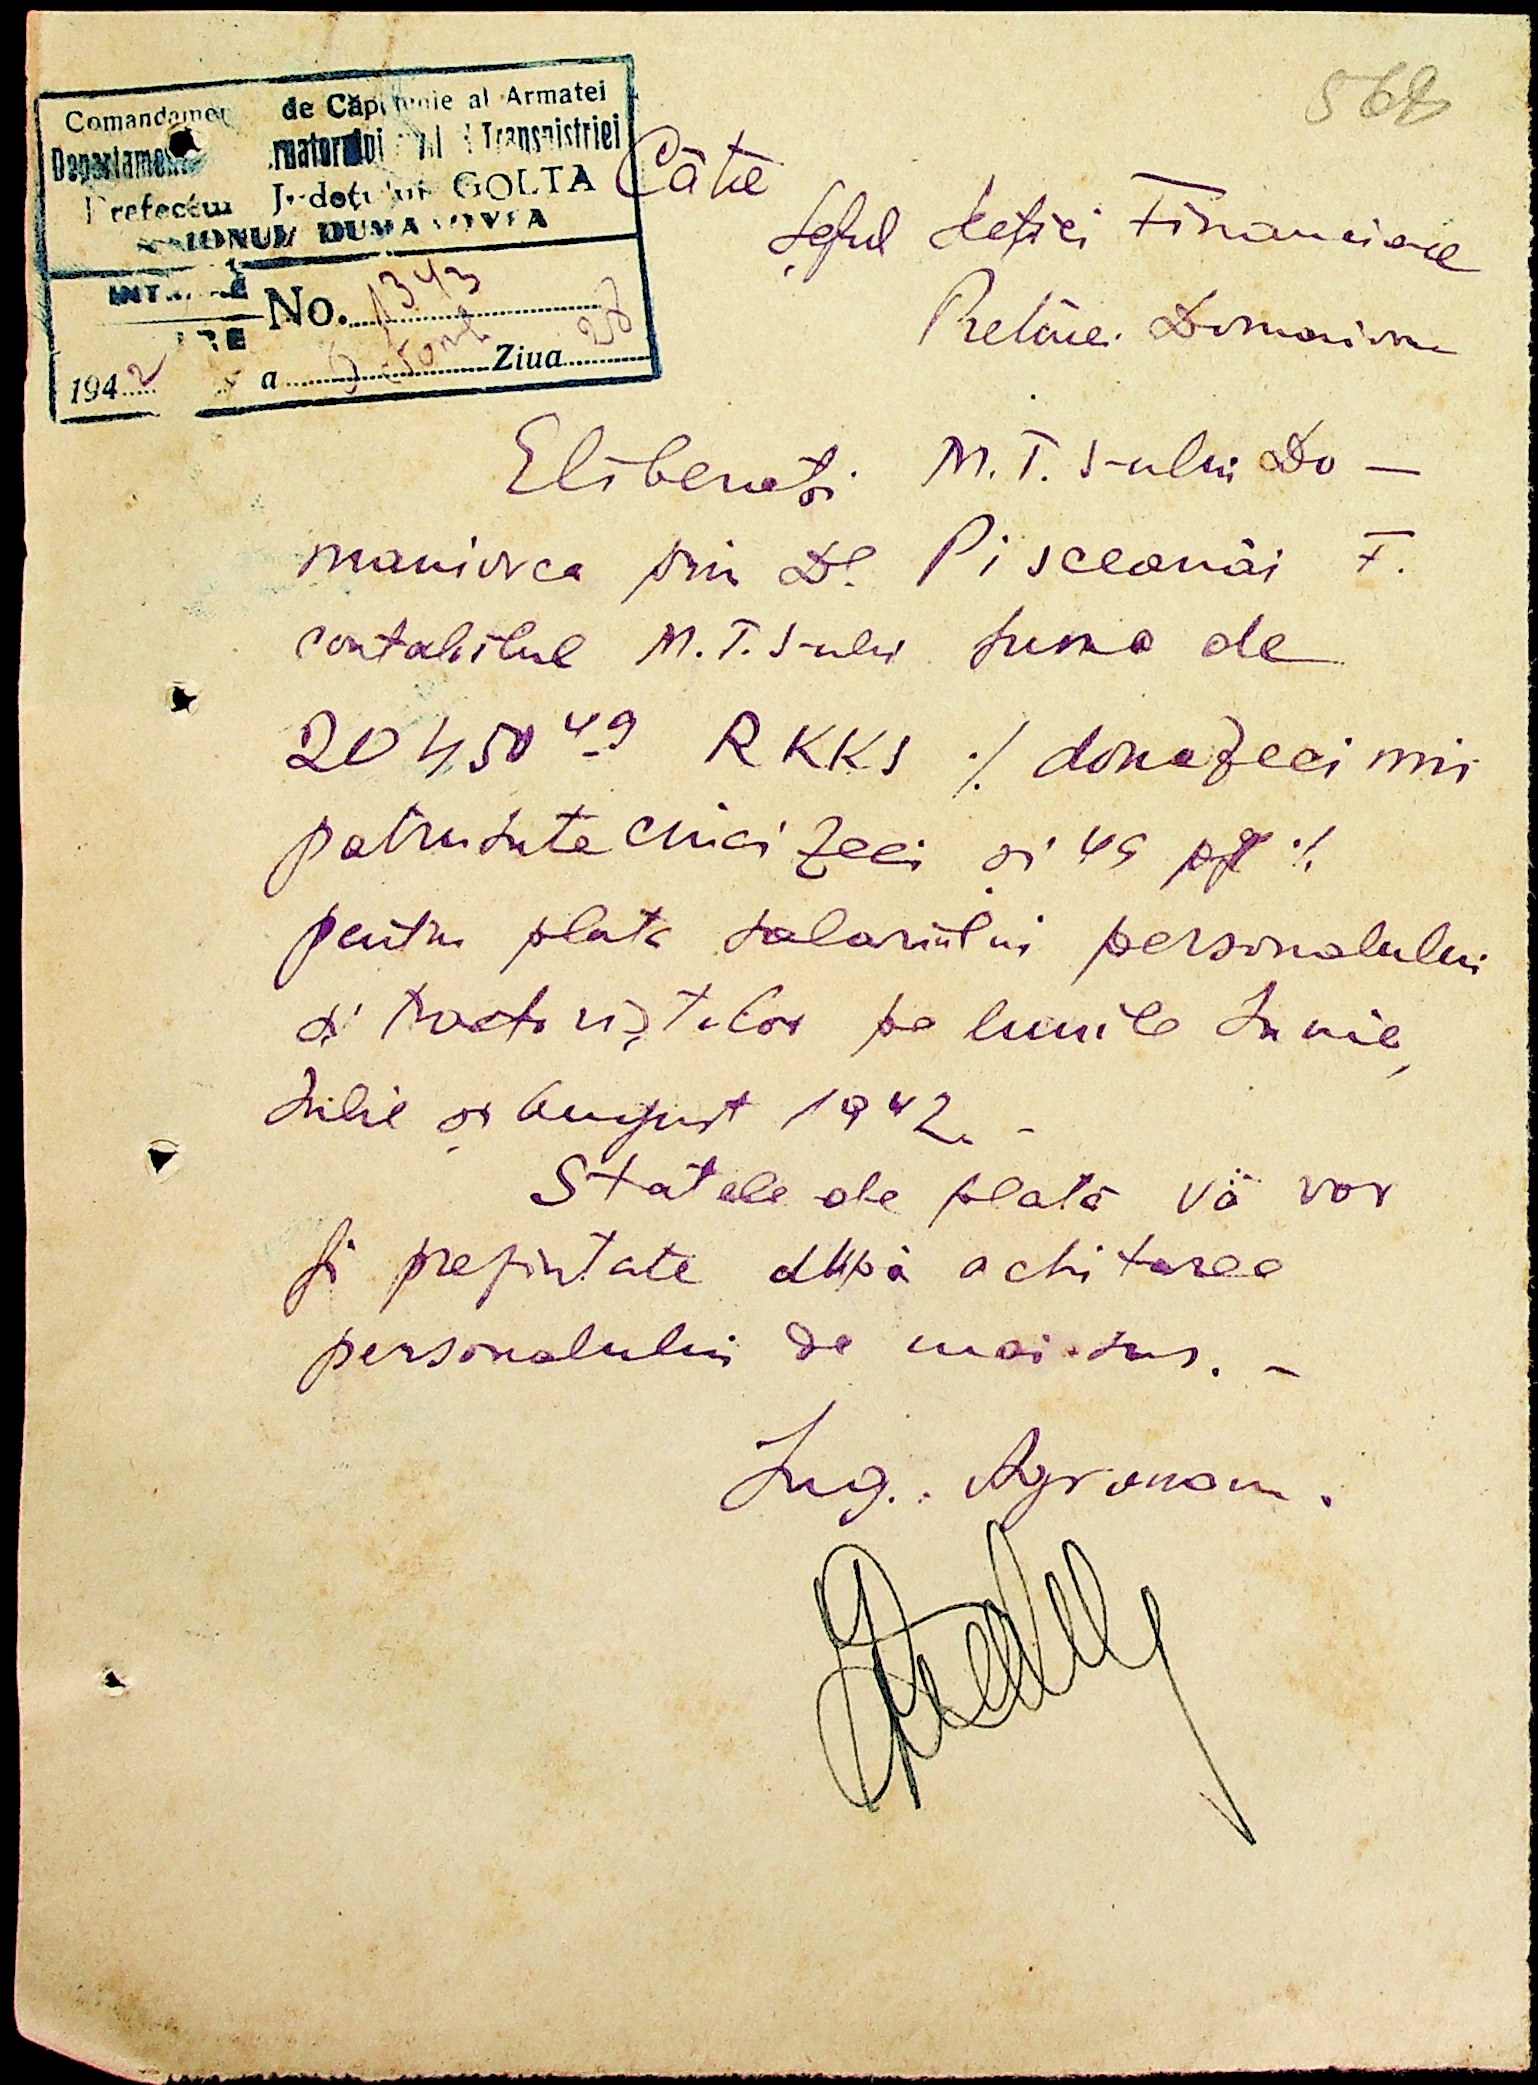 568
Comandamen de Căpitănie al Armatei
Departamen rnatorului Transnistriei
Prefectura Județului GOLTA
RAIONUL DUMANOVCA
INTRARE No. 1343
IRE
1942 a Ziua 28
Către
Șeful Secției Financiare
Preturei Domaniovca
Eliberați M.T.S-ului Do-
maniovca prin Dl. Pisceanâi F.
contabilul M.T.S-ului suma de
20450 49 RKKS ·/. douăzeci mii
patrusute cinci zeci și 49 pf ·/.
pentru plata salariului personalului
și tractoriștilor pe lunile Iunie,
Iulie și August 1942. -
Statele de plată vă vor
fi prezintate după achitarea
personalului de mai sus. -
Ing. Agronom.